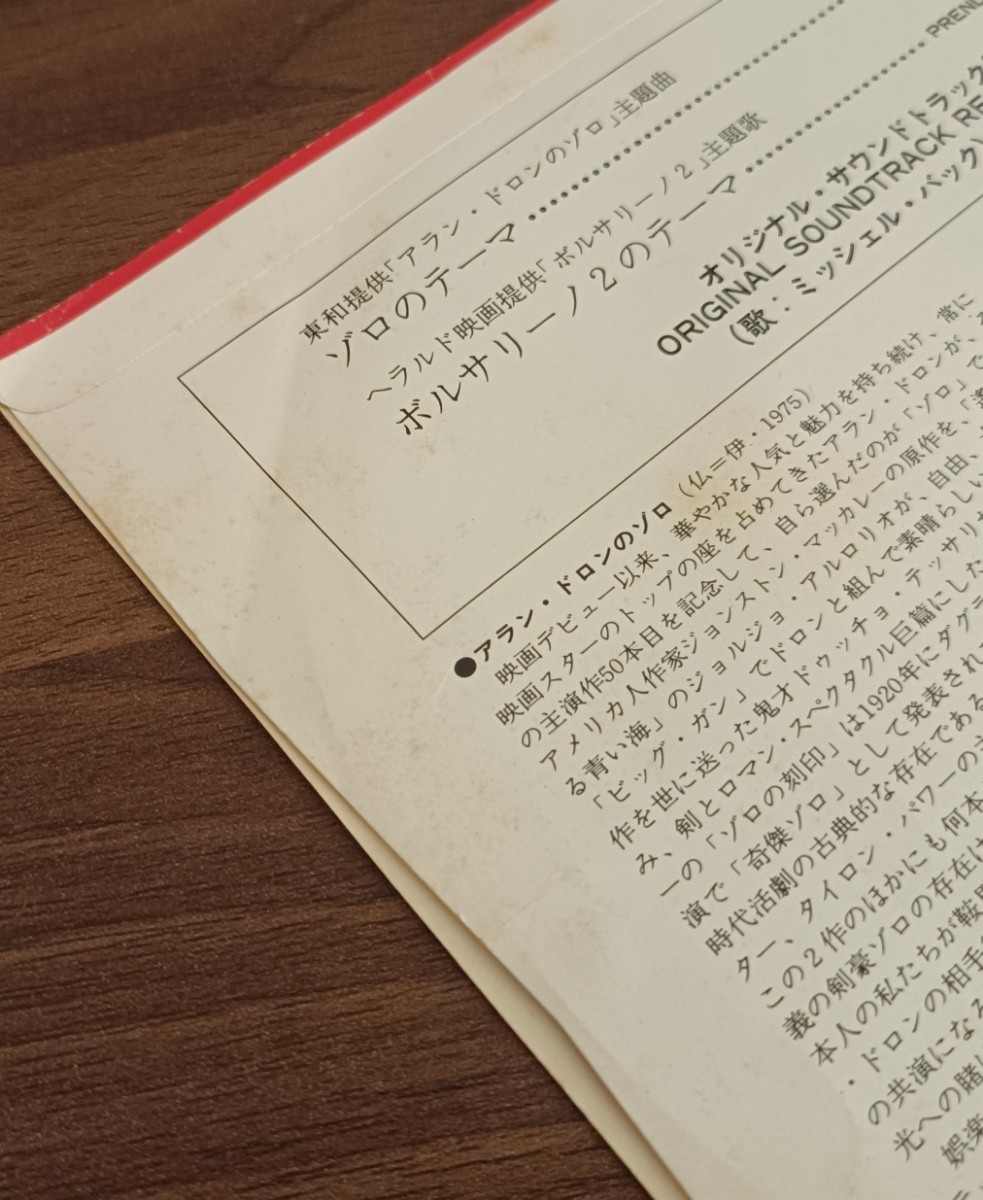 東和提供「アラン・ドロンのゾロ」主題曲
ゾロのテーマ
ヘラルド映画提供「ボルサリーノ2」主題歌
ボルサリーノ2のテーマ
オリジナル・サウンドトラック
ORIGINAL SOUNDTRACK RE
(歌：ミッシェル・バック)
●アラン・ドロンのゾロ(仏＝伊・1975)
映画デビュー以来、華やかな人気と魅力を持ち続け、常に
映画スターのトップの座を占めてきたアラン・ドロンが、
の主演作50本目を記念して、自ら選んだのが「ゾロ」で
アメリカ人作家ジョンストン・マッカレーの原作を、
る青い海」のジョルジョ・アルロリオが、自由、
「ビッグ・ガン」でドロンと組んで素晴らしい
作を世に送った鬼才ドゥッチョ・テッサリ
み、剣とロマン・スペクタクル巨篇にした
ーの「ゾロの刻印」は1920年にダグ
演で「奇傑ゾロ」として発表され
時代活劇の古典的な存在である
ター、タイロン・パワーの
この2作のほかにも何本
義の剣豪ゾロの存在は
本人の私たちが鞍馬
・ドロンの相手
の共演になる
光への賭
娯楽